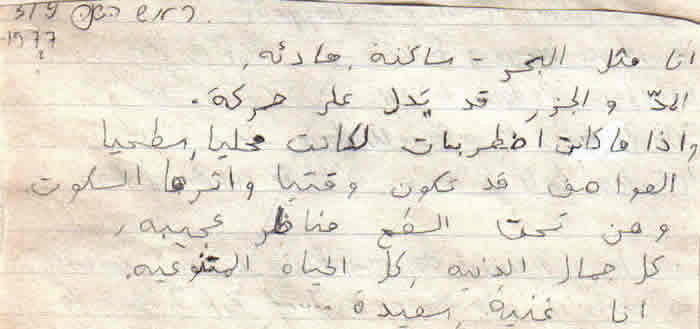 1977
?
انا مثل البحر - ساكنة, هادئه,
المدّ و الجزر قد يَدل على حركة.
واذا ما كانت اضطربات لكانت محليا, سطحيا
العواصف قد تكون وقتيا واثرها السكوت
و من تحت السطح مناظر عجيبه,
كل جمال الدنيه, كل الحياة المتنوعيه.
انا غنية, سعيدة